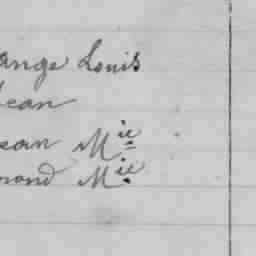 ange Louis
Jean
san Mie
mond Mie